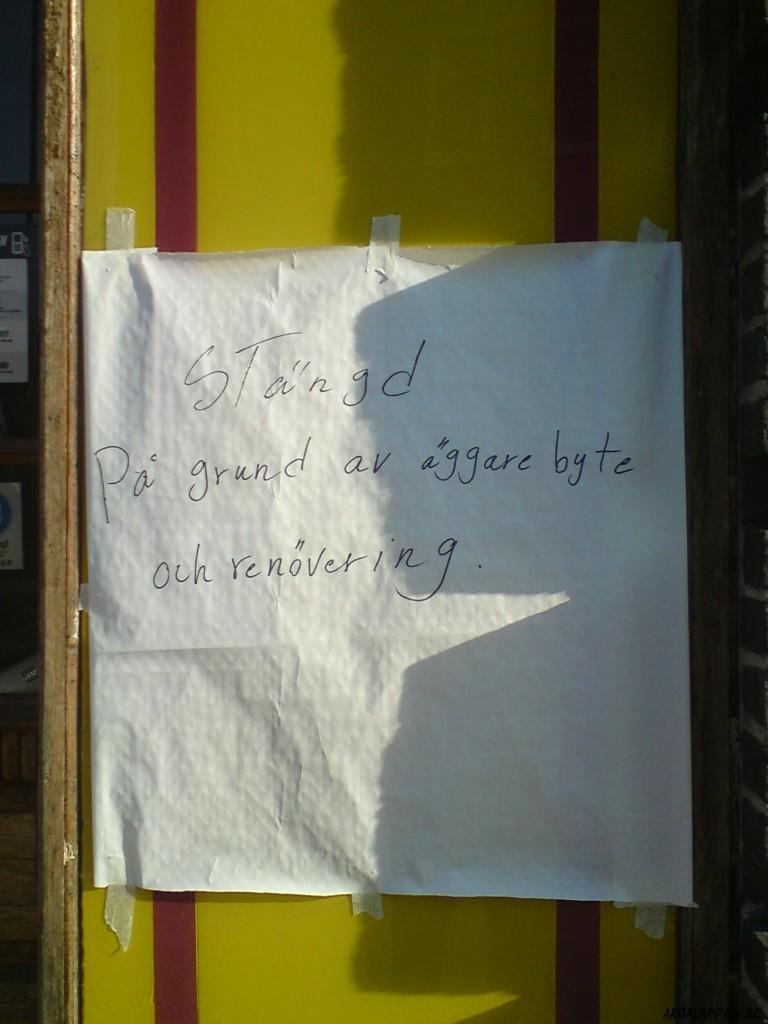 STängd
På grund av äggare byte
och renövering.
ARGALAPPEN.SE